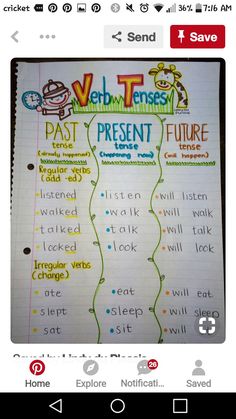 cricket
36% 7:16 AM
Send
Save
Verb Tenses
PAST PRESENT FUTURE
tense tense tense
(already happened) (happening now) (will happen)
Regular verbs
(add -ed)
listened listen will listen
walked walk will walk
talked talk will talk
looked look will look
Irregular verbs
(change)
ate eat will eat
slept sleep will sleep
sat sit will
Home Explore Notificati... Saved
26